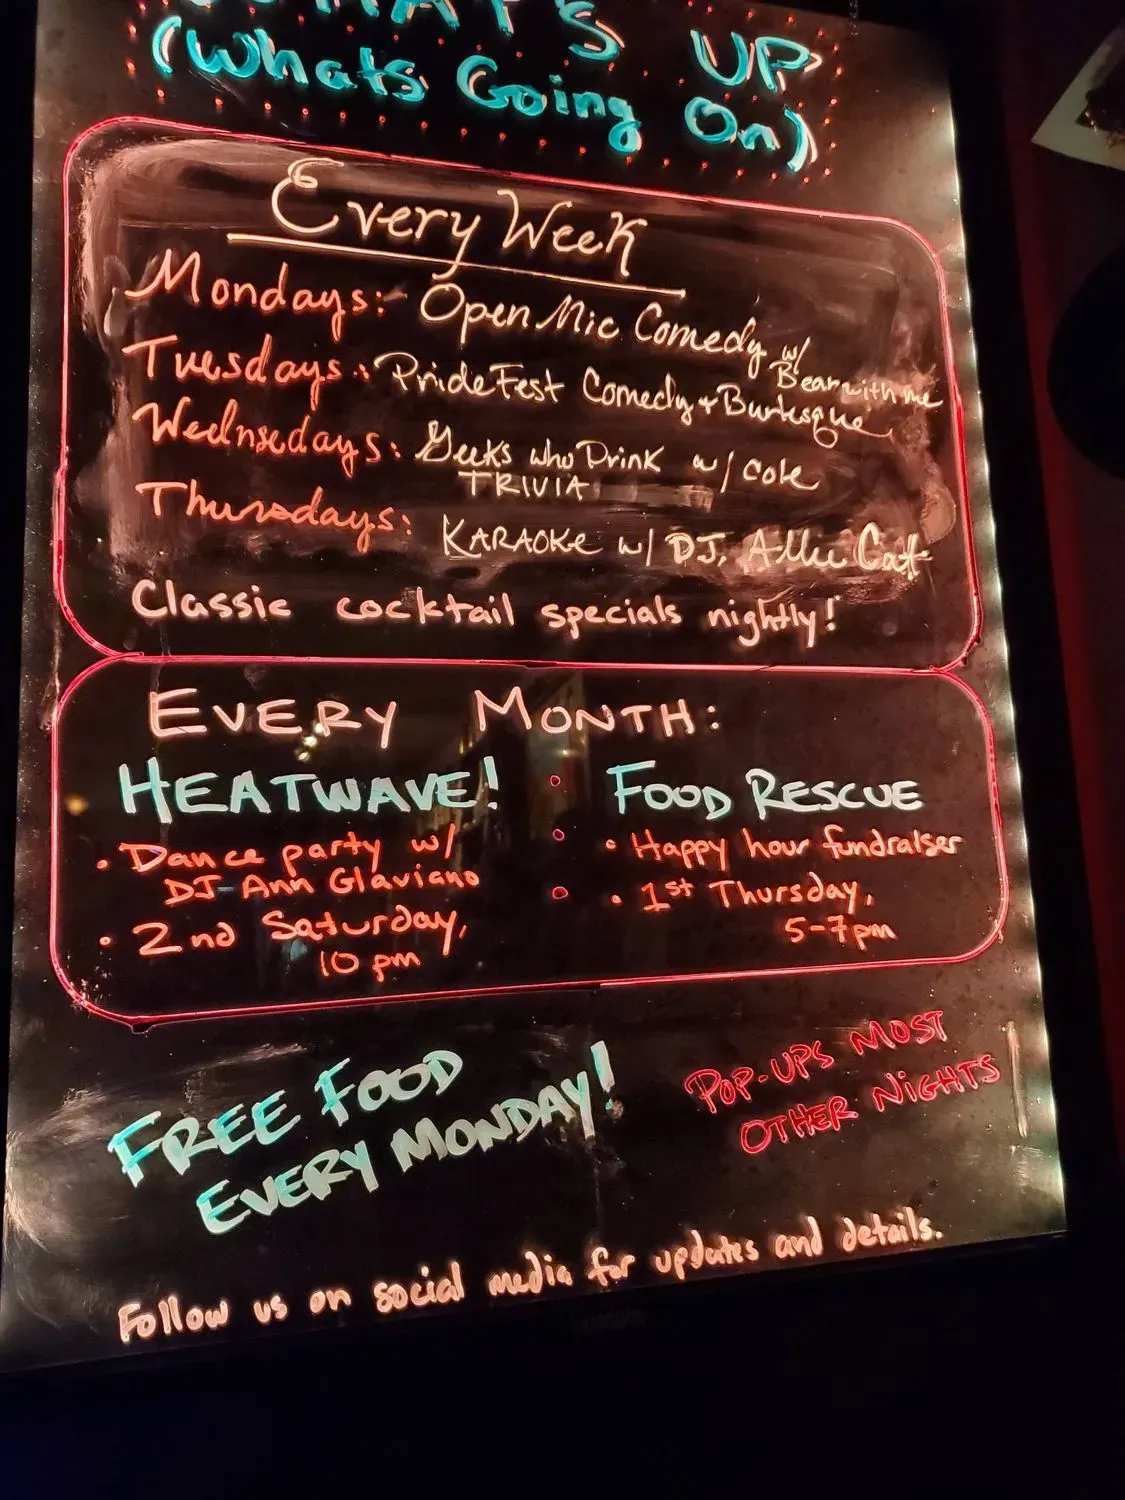 WHAT'S UP
(Whats Going On)
Every Week
Mondays: Open Mic Comedy w/
Bear with me
Tuesdays: PrideFest Comedy + Burlesque
Wednesdays: Geeks who Drink w/ Cole
TRIVIA
Thursdays: KARAOKE w/ DJ. Alley Cat
Classic cocktail specials nightly!
EVERY MONTH:
HEATWAVE!
• Dance party w/
DJ Ann Glaviano
• 2nd Saturday,
10 pm
FOOD RESCUE
• Happy hour fundraiser
• 1st Thursday,
5-7pm
FREE FOOD
EVERY MONDAY!
POP-UPS MOST
OTHER NIGHTS
Follow us on social media for updates and details.